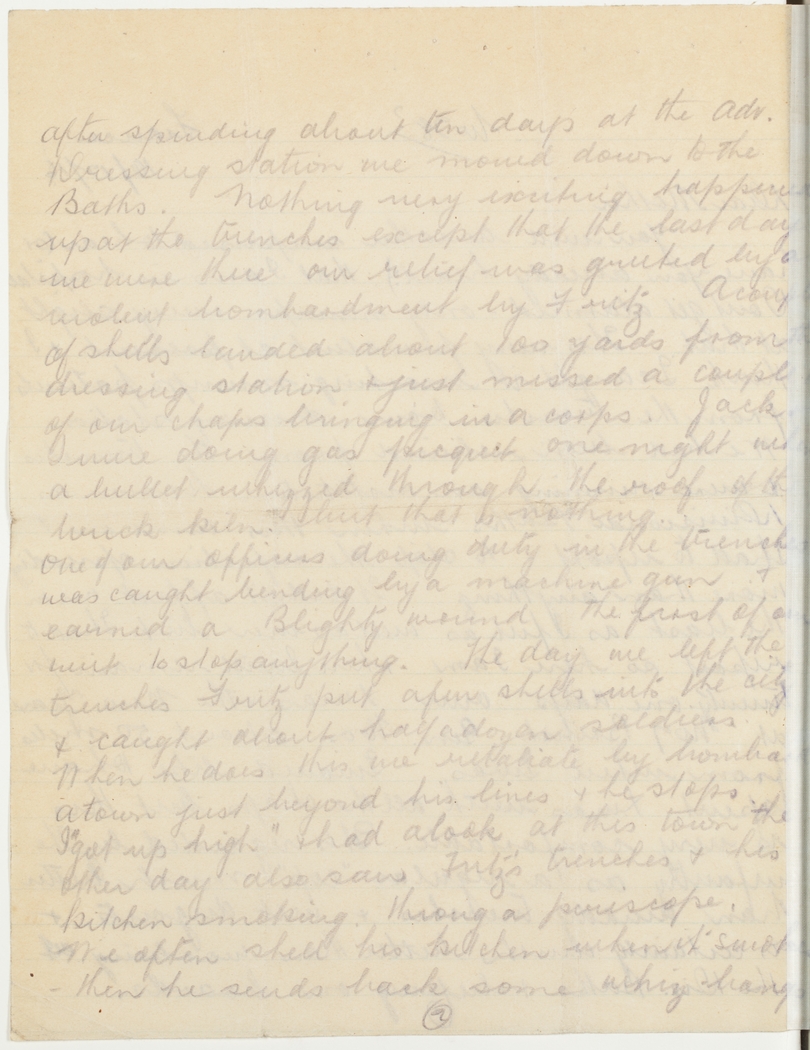 after spending about ten days at the Adv.
Dressing station we moved down to the
Baths. Nothing very exciting happene
up at the trenches except that the last day
we were there our relief was greeted by a
violent bombardment by Fritz A coup
of shells landed about 100 yards from
dressing station & just missed a coupl
of our chaps bringing in a corps. Jack
I were doing gas picquet one night
a bullet whizzed through the roof of th
brick kiln. but that is nothing.
One of our officers doing duty in the trench
was caught bending by a machine gun. &
earned a Blighty wound the first of o
unit to stop anything. The day we left the
trenches Fritz put a few shells into the city
& caught about half a dozen soldiers.
When he does this we retaliate by bomba
a town just beyond his lines & he stops.
I "got up high" & had a look at this town the
other day also saw Fritz's trenches & his
kitchen smoking. throug a periscope.
We often shell his kitchen when it smok
- then he sends back some whiz-bang
9